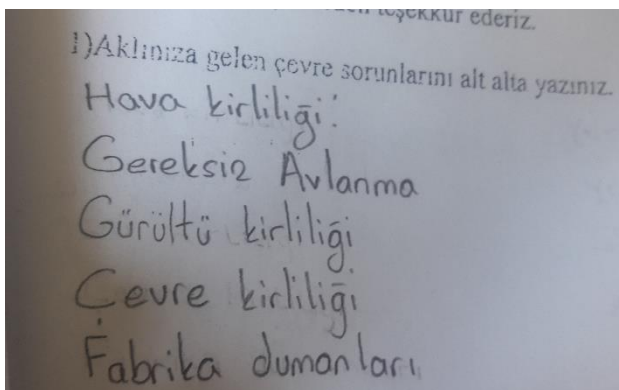 teşekkür ederiz.
1)Aklınıza gelen çevre sorunlarını alt alta yazınız.
Hava kirliliği:
Gereksiz Avlanma
Gürültü kirliliği
Çevre kirliliği
Fabrika dumanları